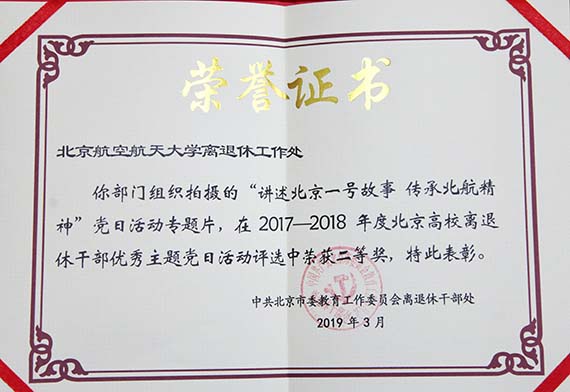 荣誉证书
北京航空航天大学离退休工作处
你部门组织拍摄的“讲述北京一号故事 传承北航精
神”党日活动专题片，在 2017—2018 年度北京高校离退
休干部优秀主题党日活动评选中荣获二等奖，特此表彰。
中共北京市委教育工作委员会离退休干部处
2019 年 3 月